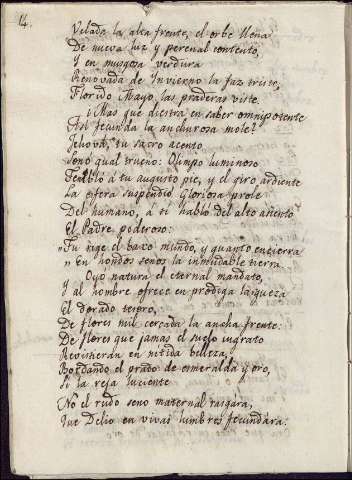 14.
Velada la alta frente, el orbe llena
De nueva luz y perenal contento,
Y en musgosa verdura
Renovada de Invierno la faz triste,
Florido Mayo las praderas viste.
¿Mas que diestra en saber omnipotente
Asi fecunda la anchurosa mole?
Jehová, tu sacro acento
Sonó qual trueno: Olimpo luminoso
Tembló á tu augusto pie, y el giro ardiente
La esfera suspendió. Gloriosa prole
Del humano, á ti habló del alto asiento
El Padre poderoso:
"Tu rige el baxo mundo, y quanto encierra
" En hondos senos la inmudable tierra.
Oyó natura el eternal mandato,
Y al hombre ofrece en prodiga largueza
El dorado tesoro,
De flores mil cercada la ancha frente.
De flores que jamas el suelo ingrato
Revistieran en nitida belleza,
Bordando el prado de esmeralda y oro,
Si la reja luciente
No el rudo seno maternal rasgara,
Que Delio en vivas lumbres fecundara.